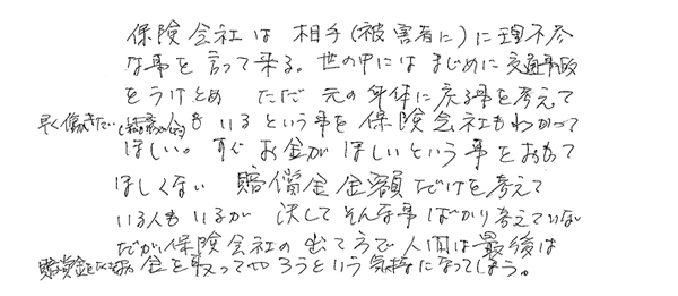 保険会社は 相手(被害者に)に理不尽
な事を言って来る。世の中には まじめに交通事故
をうけとめ ただ 元の身体に戻る事を考えて
早く働きたい も いるという事を 保険会社もわかって
ほしい。すぐ お金が ほしいという 事をおもて
ほしくない 賠償金 金額だけを考えて
いる人もいるが 決してそんな事ばかり考えていない
だが、保険会社の 出て方で人間は最後は
金を取ってやろうという気持になってしまう。